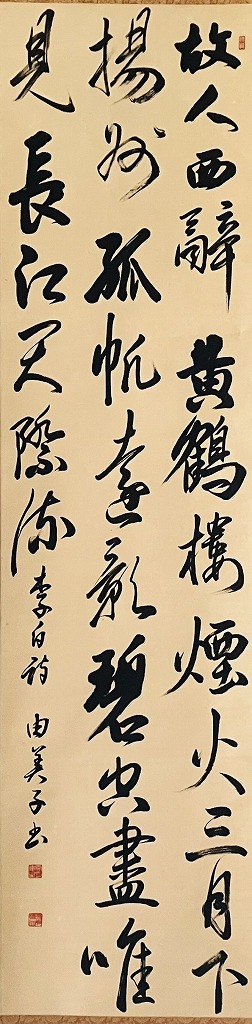 故人西辭黄鶴樓煙火三月下
揚州孤帆遠影碧空盡唯
見長江天際流李白詩由美子書